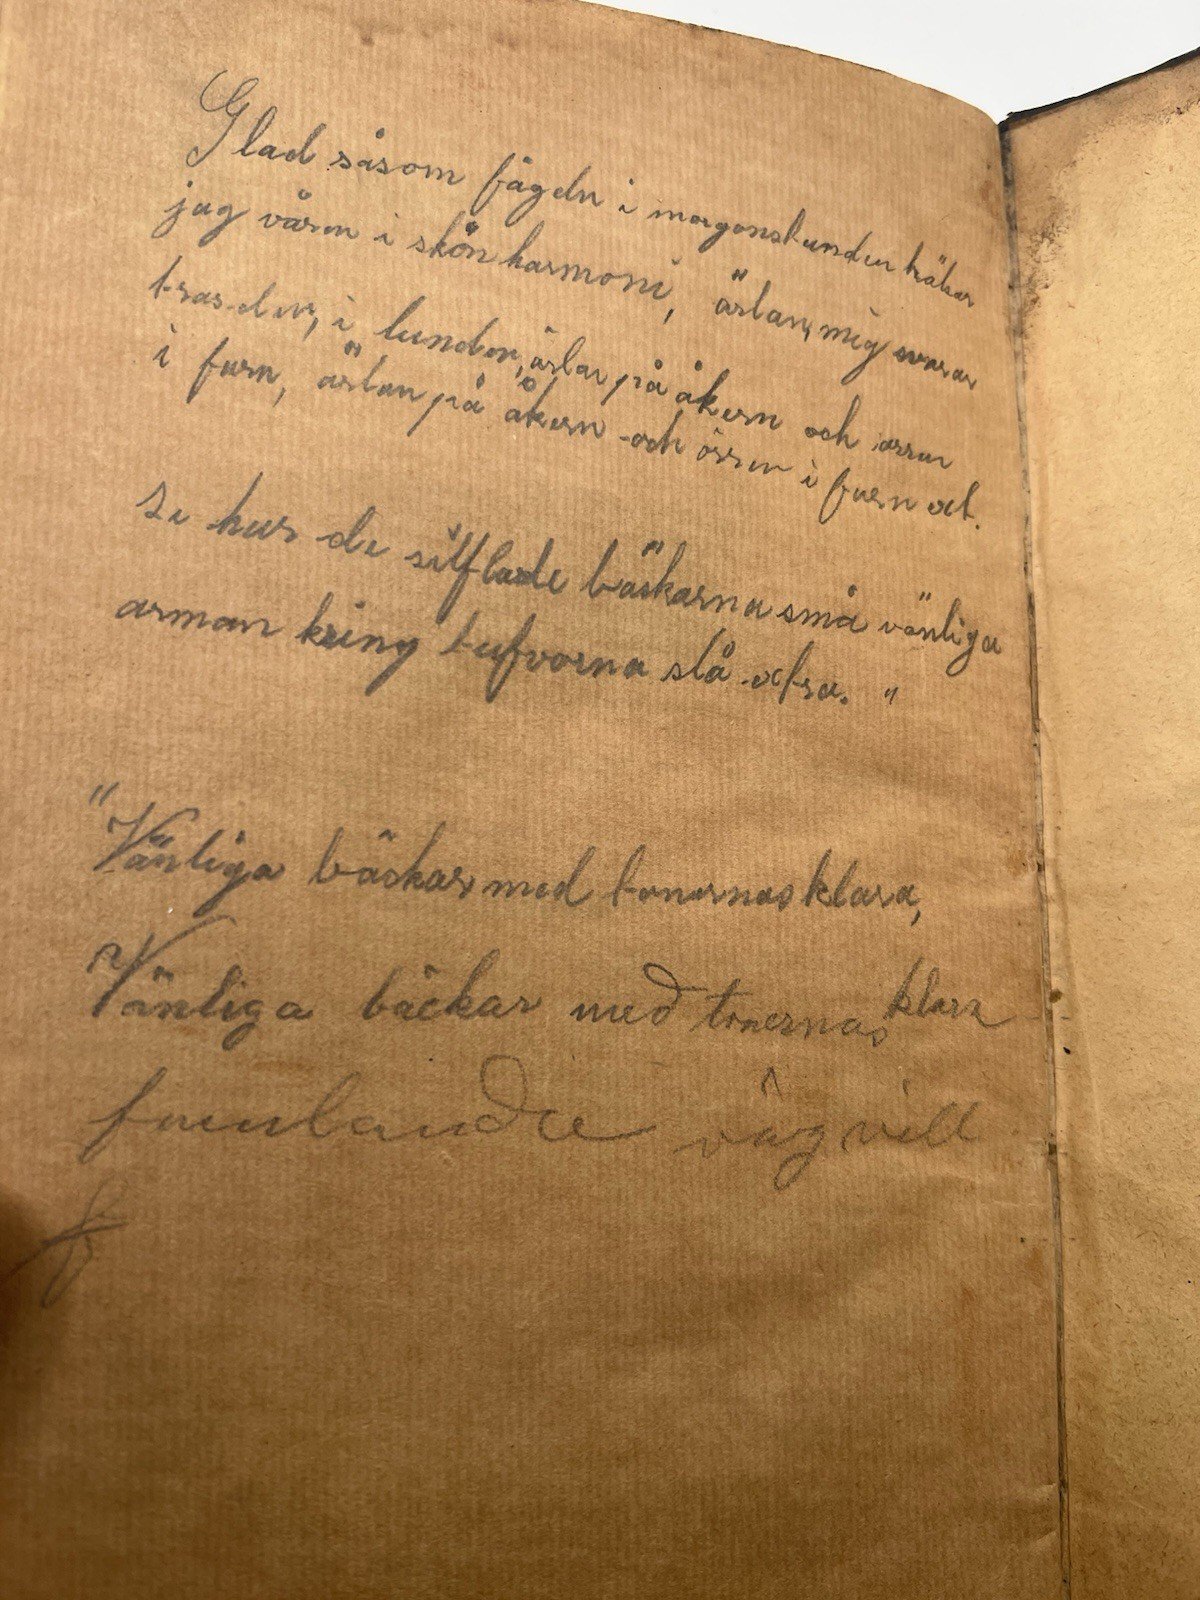 Glad såsom fågeln i morgonstunden hälsar
jag våren i skön harmoni, "ärlan, mig svarar
trasten, i lunden, ärlan på åkern och orren
i furn, ärlan på åkern och orren i furn oct.
Se hur de silflade bäckarna små vänliga
arman kring tufvorna slå octra. "
"Vänliga bäckar, med tonernas klara,
Vänliga bäckar med tonernas klara
våg vill